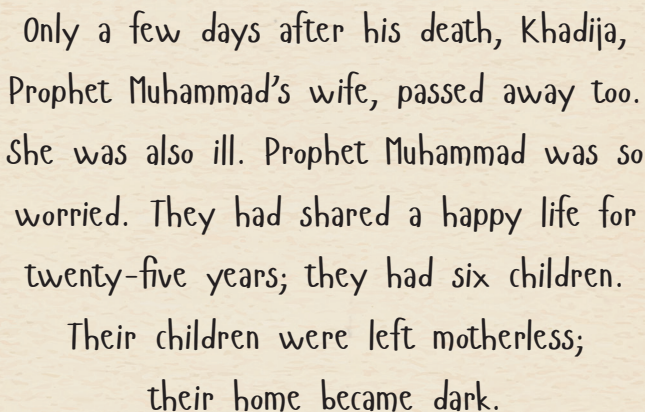 Only a few days after his death, Khadija,
Prophet Muhammad's wife, passed away too.
She was also ill. Prophet Muhammad was so
worried. They had shared a happy life for
twenty-five years; they had six children.
Their children were left motherless;
their home became dark.